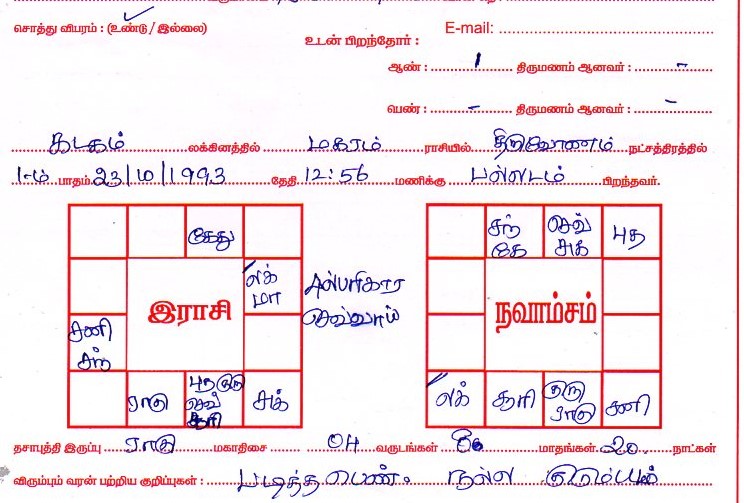 சொத்து விபரம் : (உண்டு / இல்லை)
உடன் பிறந்தோர் :
E-mail:
ஆண் : 1 திருமணம் ஆனவர் : -
பெண் : - திருமணம் ஆனவர் : -
கடகம் லக்கினத்தில் மகரம் ராசியில் திருவோணம் நட்சத்திரத்தில்
1-ம் பாதம் 23/10/1993 தேதி 12:56 மணிக்கு பல்லடம் பிறந்தவர்.
கேது
லக் மா
இராசி
சனி சந்
ராகு
புத குரு செவ் சூரி
சுக்
பரிகார செவ்வாய்
சந் கே
செவ் சுக்
புத
நவாம்சம்
லக்
சூரி
குரு ராகு
சனி
தசாபுத்தி இருப்பு ராகு மகாதிசை 04 வருடங்கள் மாதங்கள் 20 நாட்கள்
விரும்பும் வரன் பற்றிய குறிப்புகள் : படித்த பெண். நல்ல குடும்பம்